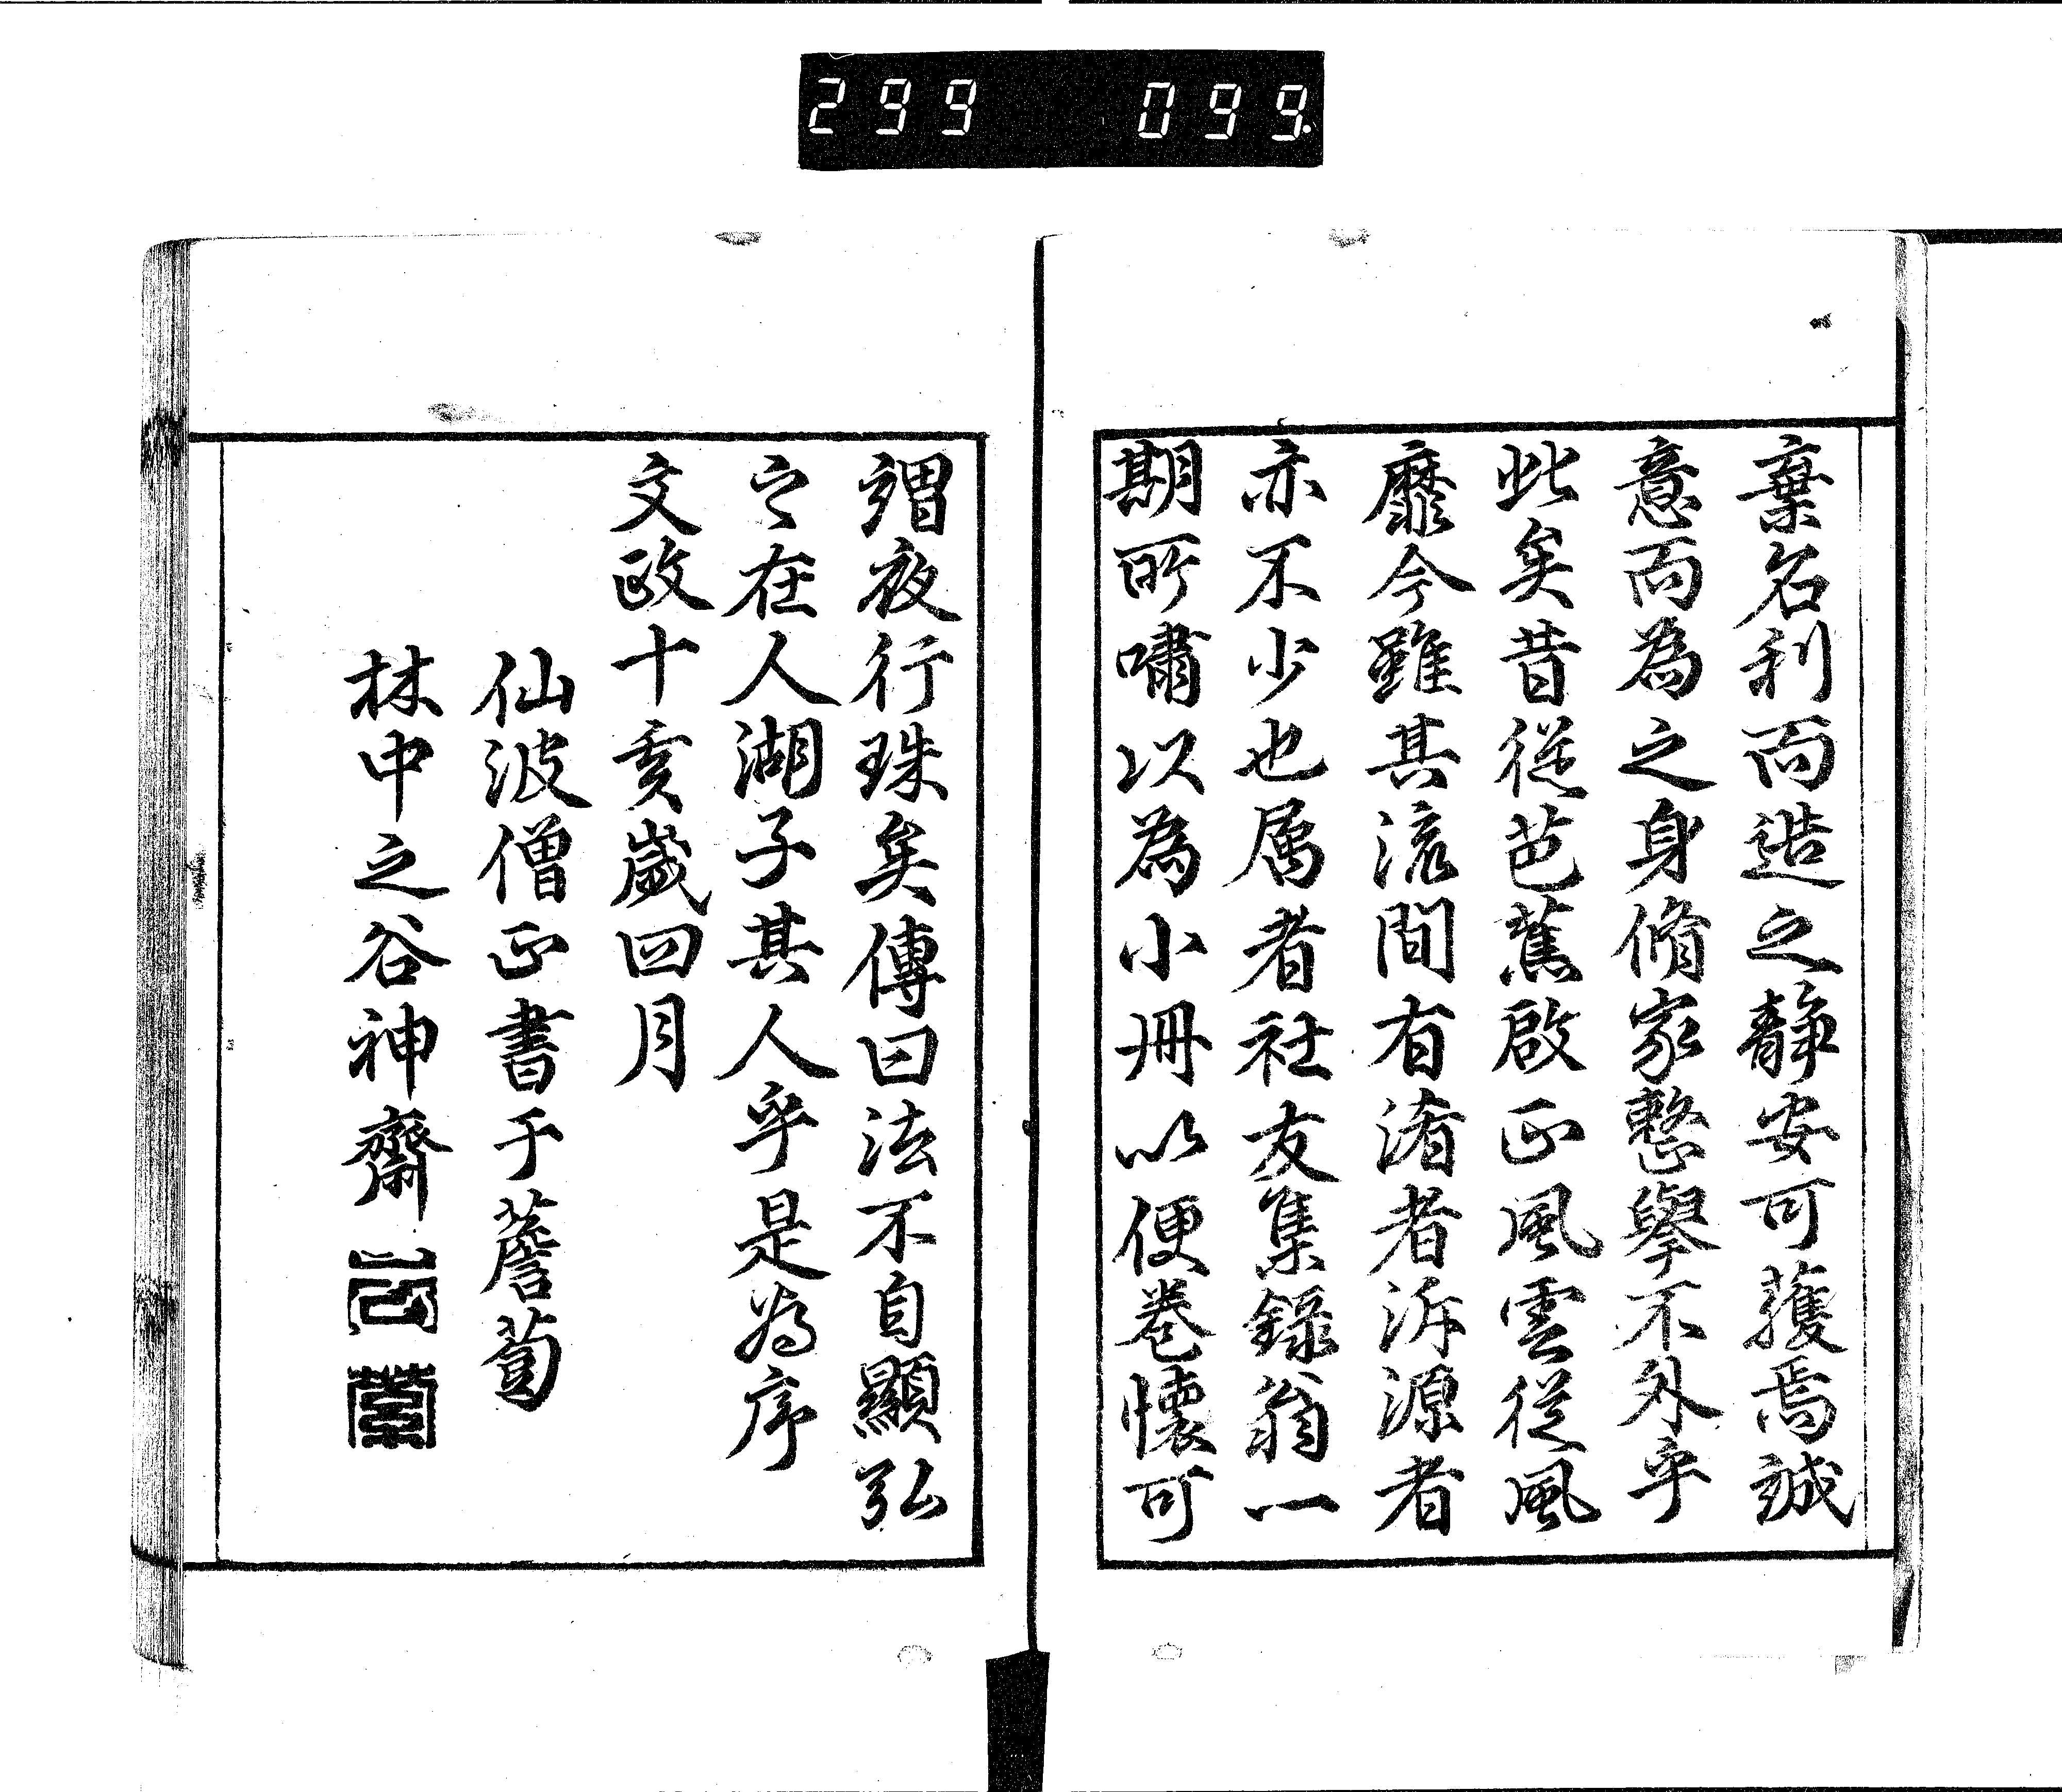 299 099
棄名利而造之静安可蕿焉誠
意而為之身脩家整擧不外乎
此矣昔從芭蕉啟正風雲従風
靡今雖其流間有淆者泝源者
亦不少也属者社友集録翁一
期所嘯以為小冊以便巻懐可
謂夜行珠矣傳曰法不自顯弘
之在人湖子其人乎是為序
文政十亥歳四月
仙波僧正書于薝蔔
林中之谷神齋